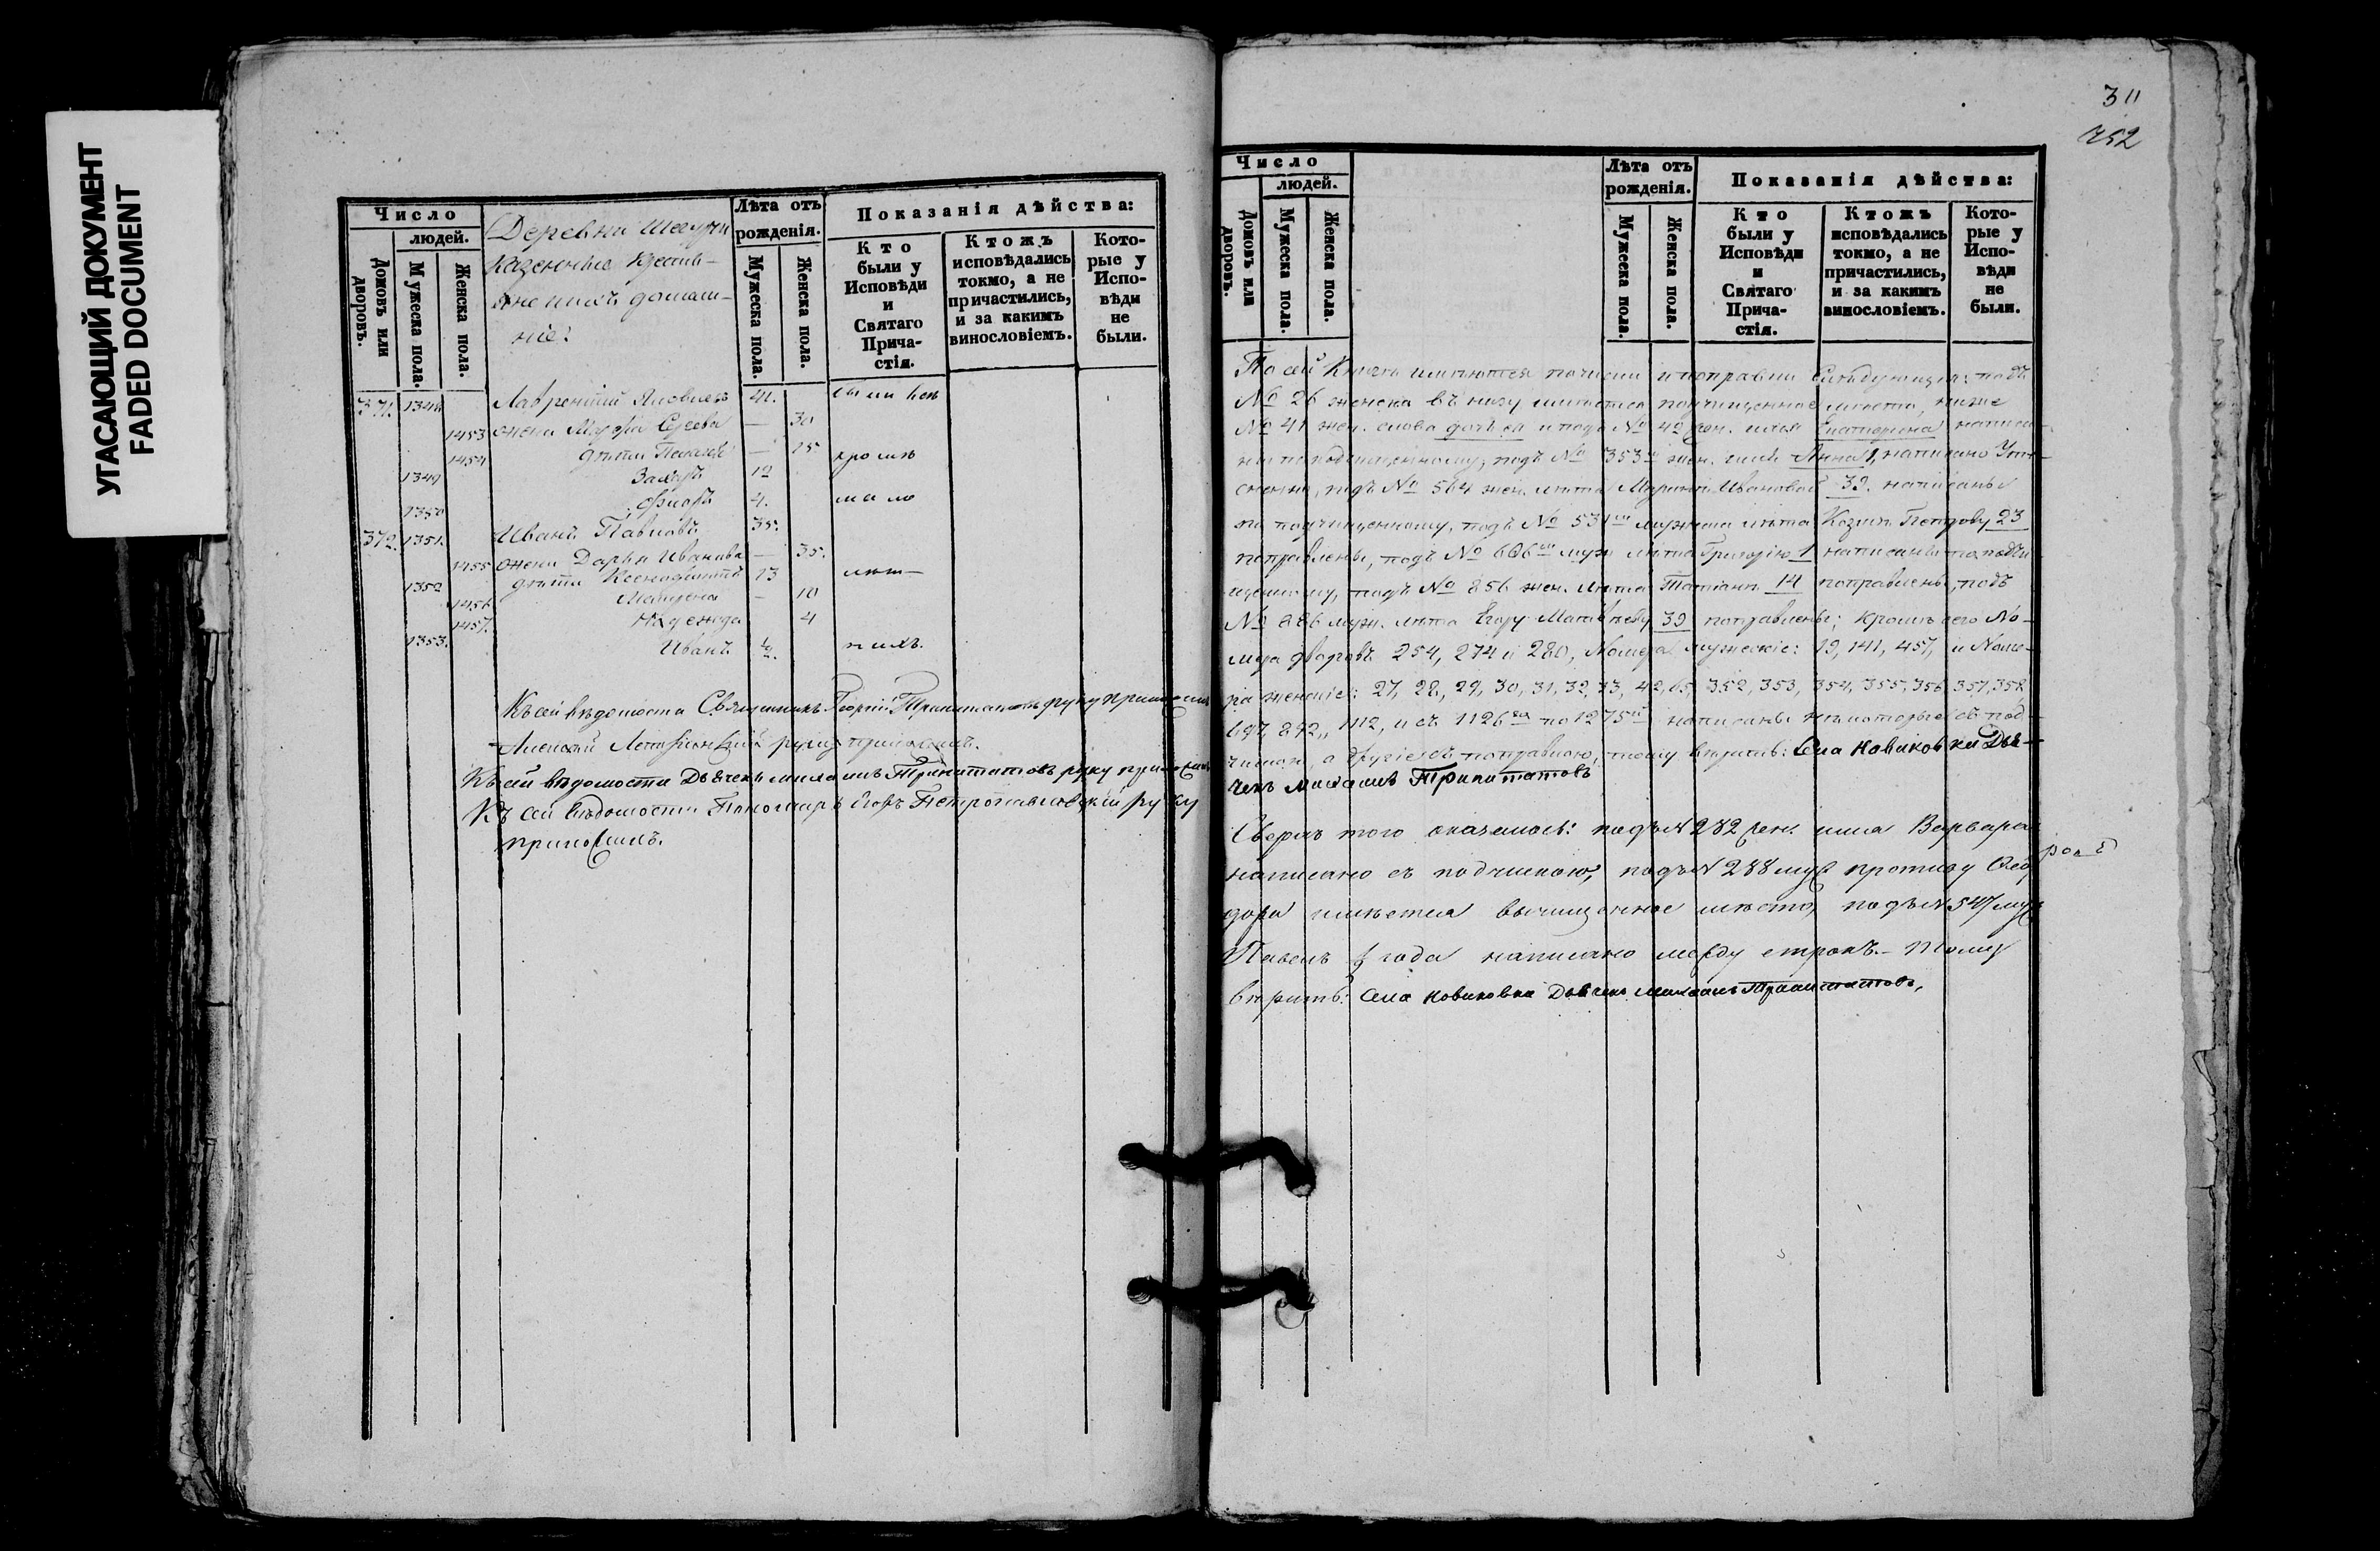 УГАСАЮЩИЙ ДОКУМЕНТ
FADED DOCUMENT
Число
людей.
Домовъ или дворовъ.
Мужеска пола.
Женска пола.
Деревни
Казенные крестья-
не ихъ домаш-
ніе:
Лѣта отъ рожденія.
Мужеска пола.
Женска пола.
Показанія дѣйства:
Кто были у Исповѣди и Святаго Прича-стія.
Ктожъ исповѣдались токмо, а не причастились, и за какимъ винословіемъ.
Кото-рые у Испо-вѣди не были.
371. 1348 Лаврентій Яковлевъ 41. были всѣ
1453 жена Марѳа — 30
1454 дѣти Пелагея — 15 кромѣ
1349 12
1350 4. мало
372. 1351. Иванъ Павловъ 35.
1455 жена Дарья Иванова — 35.
1352 дѣти Ксенофонтъ 13 лѣт—
1456 Матрена — 10
1457. Надежда 4
1353. Иванъ ½. нихъ.
Къ сей вѣдомости Священникъ Георгій Транитатовъ руку приложилъ
Алексѣй руку приложилъ.
Къ сей вѣдомости Дьячекъ Михаилъ Транитатовъ руку приложилъ
Къ сей вѣдомости Пономарь Егоръ Петропавловскій руку
приложилъ.
311
752
Число
людей.
Домовъ или дворовъ.
Мужеска пола.
Женска пола.
Лѣта отъ рожденія.
Мужеска пола.
Женска пола.
Показанія дѣйства:
Кто были у Исповѣди и Святаго Прича-стія.
Ктожъ исповѣдались токмо, а не причастились, и за какимъ винословіемъ.
Кото-рые у Испо-вѣди не были.
По сей Книгѣ имѣются почистки и поправки слѣдующія: подъ
№ 26 женска въ низу имѣется подчищенное мѣсто, ниже
№ 41 жен. слова дочь ея и подъ № 42 жен. имя Екатерина написа-
ны по подчищенному, подъ № 353 жен. имя Анна, написано
подъ № 564 жен. лѣта Марины Ивановой 39. написаны
по подчищенному, подъ № 531 мужеска лѣта Козмѣ Петрову 23
поправлены, подъ № 606 муж лѣта Григорію 1 написаны по подчи-
щенному, подъ № 856 жен. лѣта Татіанѣ 14 поправлены, подъ
№ 886 муж. лѣта Егору Матвѣеву 39 поправлены; кромѣ сего Но-
мера дворовъ 254, 274 и 280, Номера мужескіе: 19, 141, 457, и Номе-
ра женскіе: 27, 28, 29, 30, 31, 32, 33, 42, 65, 352, 353, 354, 355, 356, 357, 358
697, 892, 1112, и съ 1126 по 1275 написаны нѣкоторые съ под-
чисткою, а другіе съ поправкою, тому вѣрить: Села Новиковки Дья-
чекъ Михаилъ Транитатовъ
Сверхъ того оказалось: подъ № 282 жен. имя Варвара
написано съ подчисткою, подъ № 288 муж противу Ѳео
дора имѣется вычищенное мѣсто, подъ № 547 муж
Павелъ ½ года написано между строкъ. - Тому
вѣрить: Села Новиковки Дьячекъ Михаилъ Транитатовъ,